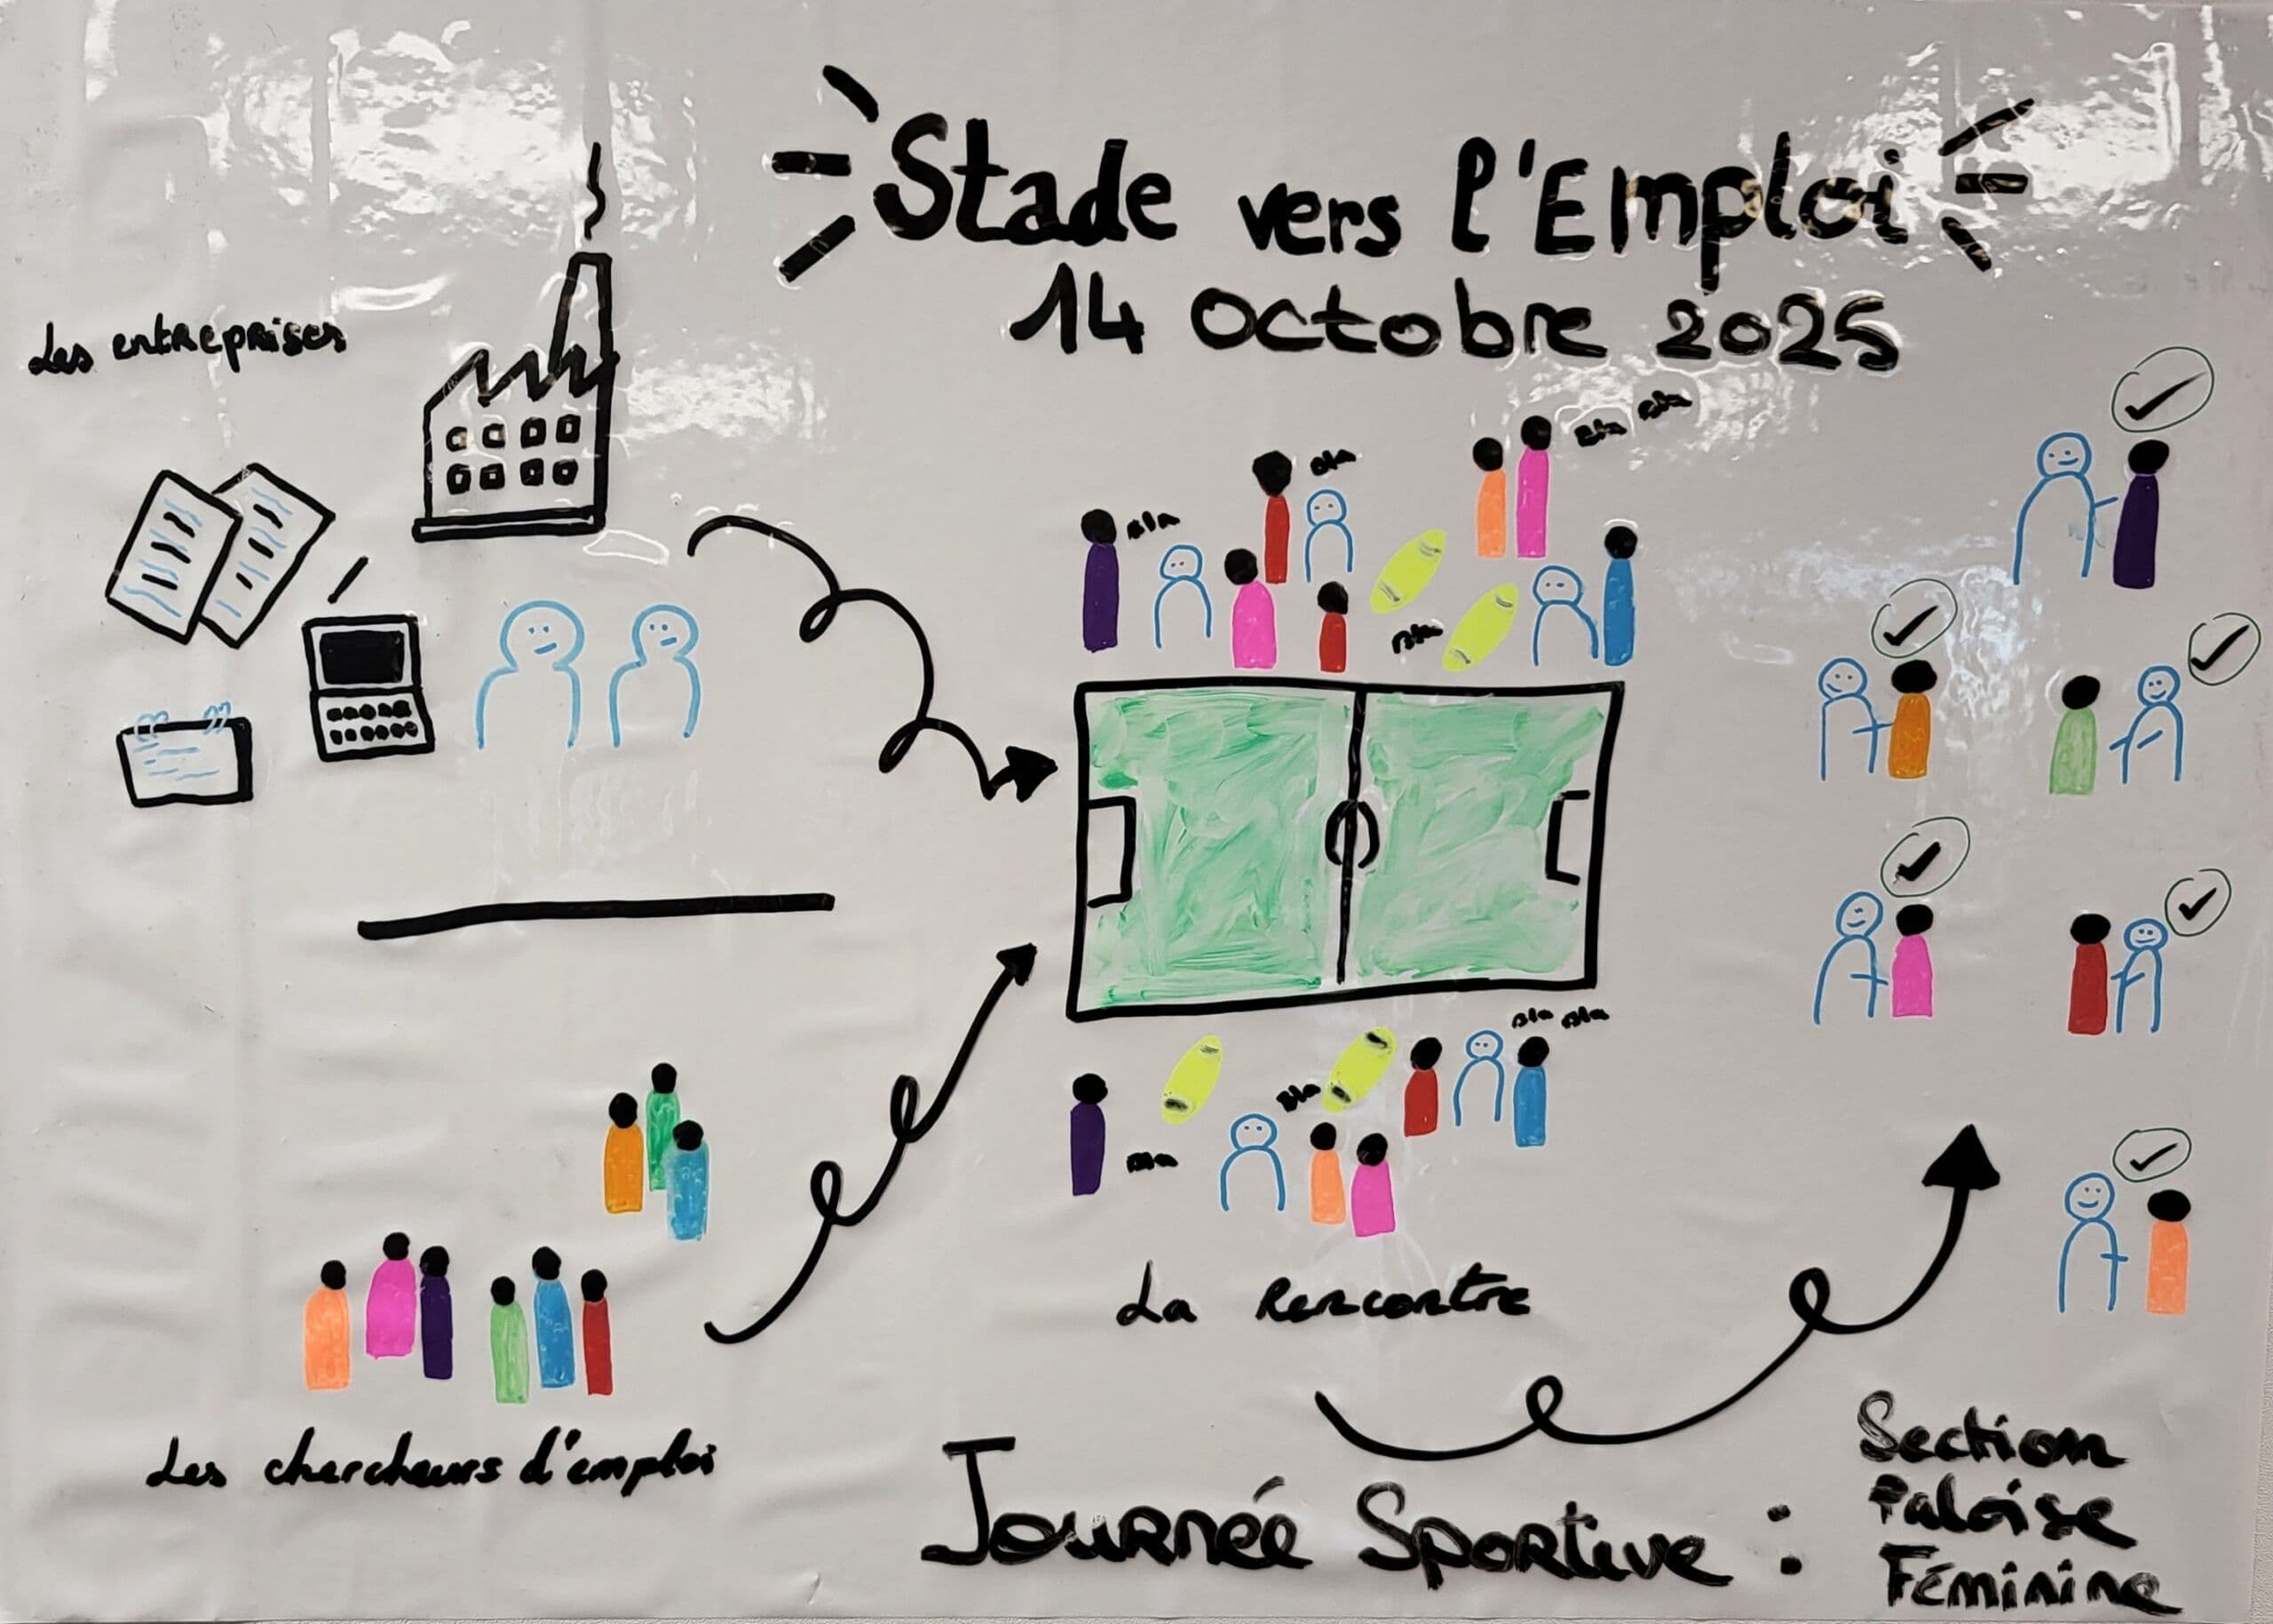 Stade vers l'Emploi
14 Octobre 2025
Les entreprises
Bla
Bla Bla
Bla
Bla
Bla Bla
Bla
Bla
La Rencontre
Les chercheurs d'emploi
Journée Sportive :
Section
Paloise
Féminine